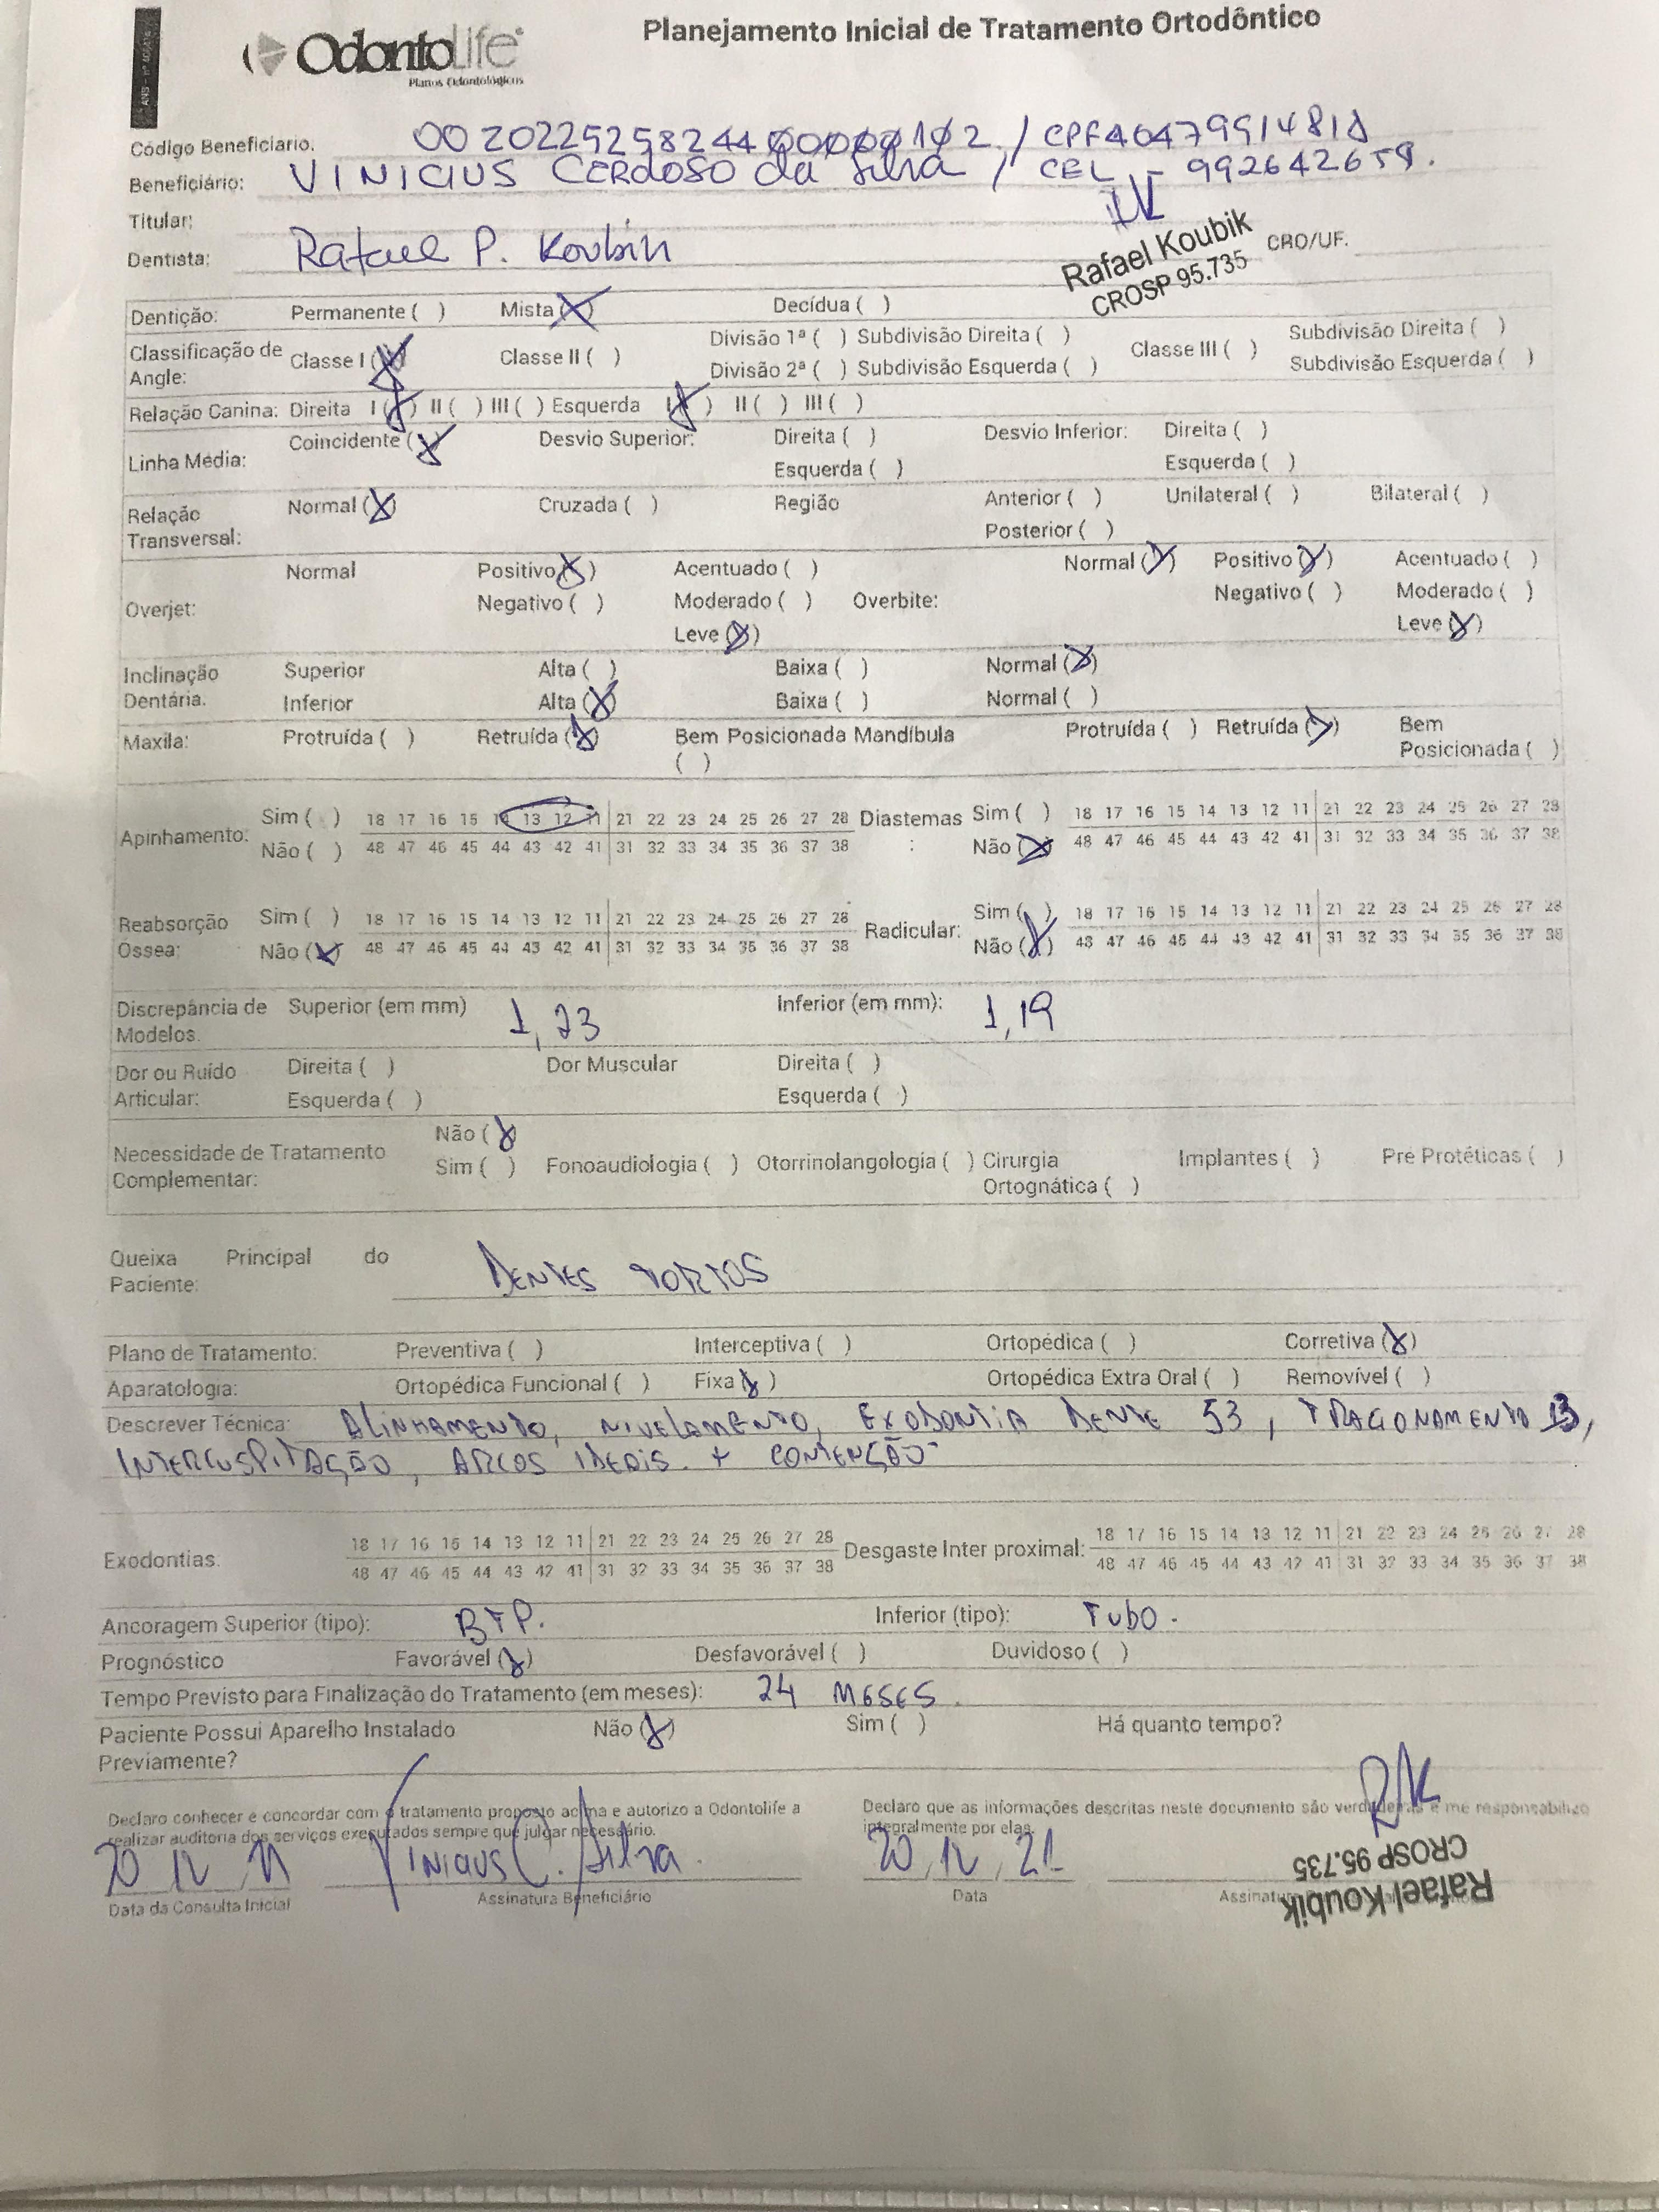 ANS - nº
OdontoLife
Planos Odontológicos
Planejamento Inicial de Tratamento Ortodôntico
Código Beneficiario. / CPF
Beneficiário: VINICIUS CERDOSO da Silva / CEL - 992642659.
Titular:
Dentista: Rafael P. Koubik Rafael Koubik CROSP 95.735 CRO/UF.
Dentição: Permanente ( ) Mista (X) Decídua ( )
Classificação de Angle: Classe I (X) Classe II ( ) Divisão 1ª ( ) Subdivisão Direita ( ) Classe III ( ) Subdivisão Direita ( )
Divisão 2ª ( ) Subdivisão Esquerda ( ) Subdivisão Esquerda ( )
Relação Canina: Direita I (X) II ( ) III ( ) Esquerda I (X) II ( ) III ( )
Linha Média: Coincidente (X) Desvio Superior: Direita ( ) Desvio Inferior: Direita ( )
Esquerda ( ) Esquerda ( )
Relação Transversal: Normal (X) Cruzada ( ) Região Anterior ( ) Unilateral ( ) Bilateral ( )
Posterior ( )
Normal Positivo (X) Acentuado ( ) Normal (X) Positivo (X) Acentuado ( )
Overjet: Negativo ( ) Moderado ( ) Overbite: Negativo ( ) Moderado ( )
Leve (X) Leve (X)
Inclinação Superior Alta ( ) Baixa ( ) Normal (X)
Dentária. Inferior Alta (X) Baixa ( ) Normal ( )
Maxila: Protruída ( ) Retruída (X) Bem Posicionada ( ) Mandíbula Protruída ( ) Retruída (X) Bem Posicionada ( )
Apinhamento: Sim ( ) 18 17 16 15 14 13 12 11 21 22 23 24 25 26 27 28 Diastemas : Sim ( ) 18 17 16 15 14 13 12 11 21 22 23 24 25 26 27 28
Não ( ) 48 47 46 45 44 43 42 41 31 32 33 34 35 36 37 38 Não (X) 48 47 46 45 44 43 42 41 31 32 33 34 35 36 37 38
Reabsorção Sim ( ) 18 17 16 15 14 13 12 11 21 22 23 24 25 26 27 28 Radicular: Sim ( ) 18 17 16 15 14 13 12 11 21 22 23 24 25 26 27 28
Óssea: Não (X) 48 47 46 45 44 43 42 41 31 32 33 34 35 36 37 38 Não (X) 48 47 46 45 44 43 42 41 31 32 33 34 35 36 37 38
Discrepância de Modelos. Superior (em mm) 1,23 Inferior (em mm): 1,19
Dor ou Ruído Direita ( ) Dor Muscular Direita ( )
Articular: Esquerda ( ) Esquerda ( )
Não (X)
Necessidade de Tratamento Complementar: Sim ( ) Fonoaudiologia ( ) Otorrinolangologia ( ) Cirurgia Ortognática ( ) Implantes ( ) Pré Protéticas ( )
Queixa Principal do Paciente: DENTES TORTOS
Plano de Tratamento: Preventiva ( ) Interceptiva ( ) Ortopédica ( ) Corretiva (X)
Aparatologia: Ortopédica Funcional ( ) Fixa (X) Ortopédica Extra Oral ( ) Removível ( )
Descrever Técnica: ALINHAMENTO, NIVELAMENTO, EXODONTIA DENTE 53, TRACIONAMENTO 13,
INTERCUSPITAÇÃO, ARCOS IDEAIS. + CONTENÇÃO
Exodontias: 18 17 16 15 14 13 12 11 21 22 23 24 25 26 27 28 Desgaste Inter proximal: 18 17 16 15 14 13 12 11 21 22 23 24 25 26 27 28
48 47 46 45 44 43 42 41 31 32 33 34 35 36 37 38 48 47 46 45 44 43 42 41 31 32 33 34 35 36 37 38
Ancoragem Superior (tipo): BTP. Inferior (tipo): Tubo.
Prognóstico Favorável (X) Desfavorável ( ) Duvidoso ( )
Tempo Previsto para Finalização do Tratamento (em meses): 24 MESES.
Paciente Possui Aparelho Instalado Previamente? Não (X) Sim ( ) Há quanto tempo?
Declaro conhecer e concordar com o tratamento proposto acima e autorizo a Odontolife a realizar auditoria dos serviços executados sempre que julgar necessário.
Declaro que as informações descritas neste documento são verdadeiras e me responsabilizo integralmente por elas.
20 12 21 Vinicius C. Silva 20, 12, 21 RK
Data da Consulta Inicial Assinatura Beneficiário Data
Rafael Koubik
CROSP 95.735